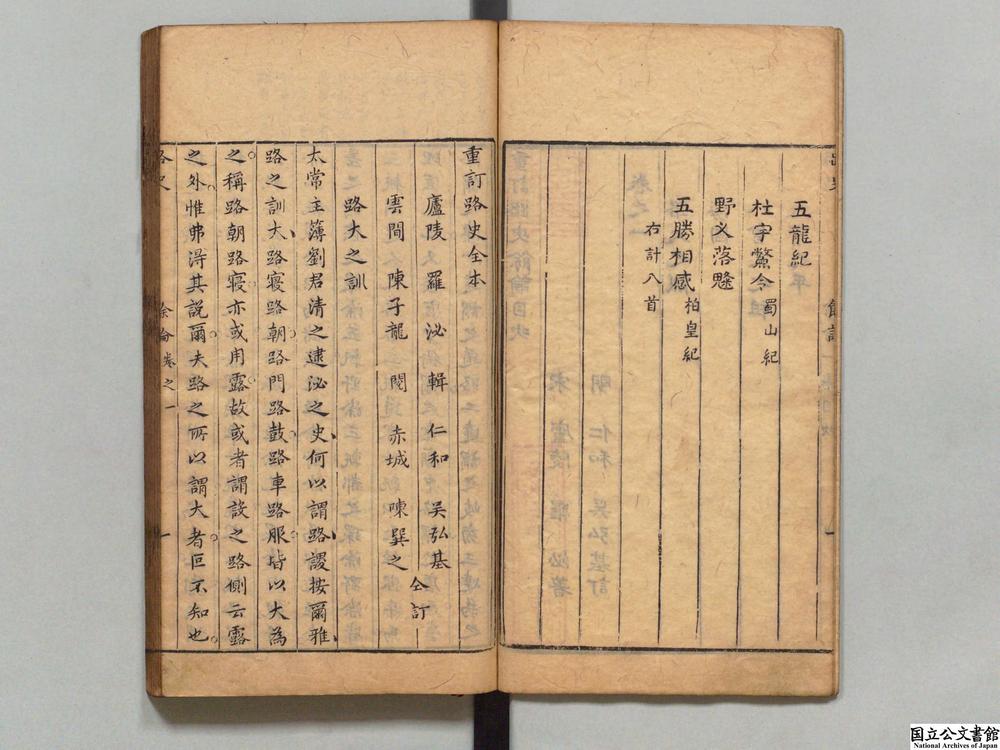 五龍紀
杜宇鱉令蜀山紀
野义落魋
五勝相感柏皇紀
右計八首
重訂路史全本
廬陵 羅泌輯 仁和 吳弘基
雲間 陳子龍 閱 赤城 陳巽之 仝訂
路大之訓
太常主簿劉君清之逮泌之史何以謂路謖按爾雅
路之訓大路寢路朝路門路鼓路車路服皆以大為
之稱路朝路寢亦或用露故或者謂設之路側云露
之外惟弗得其說爾夫路之所以謂大者叵不知也
餘論卷之一
一
国立公文書館
National Archives of Japan